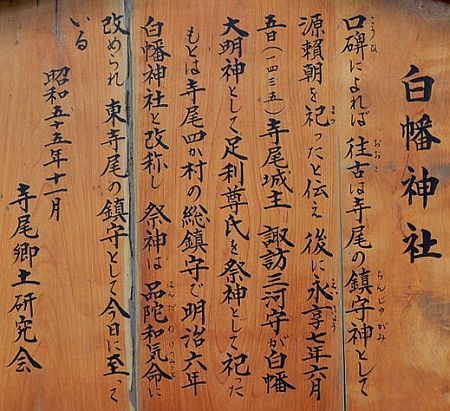 白幡神社
口碑によれば 往古は寺尾の鎮守神として
源頼朝を祀ったと伝え 後に永享七年六月
五日（一四三五）寺尾城主 諏訪三河守が白幡
大明神として足利尊氏を祭神として祀った
もとは寺尾四か村の総鎮守で明治六年
白幡神社と改称し 祭神は 品陀和気命に
改められ 東寺尾の鎮守として今日に至って
いる
昭和五十五年十一月
寺尾郷土研究会